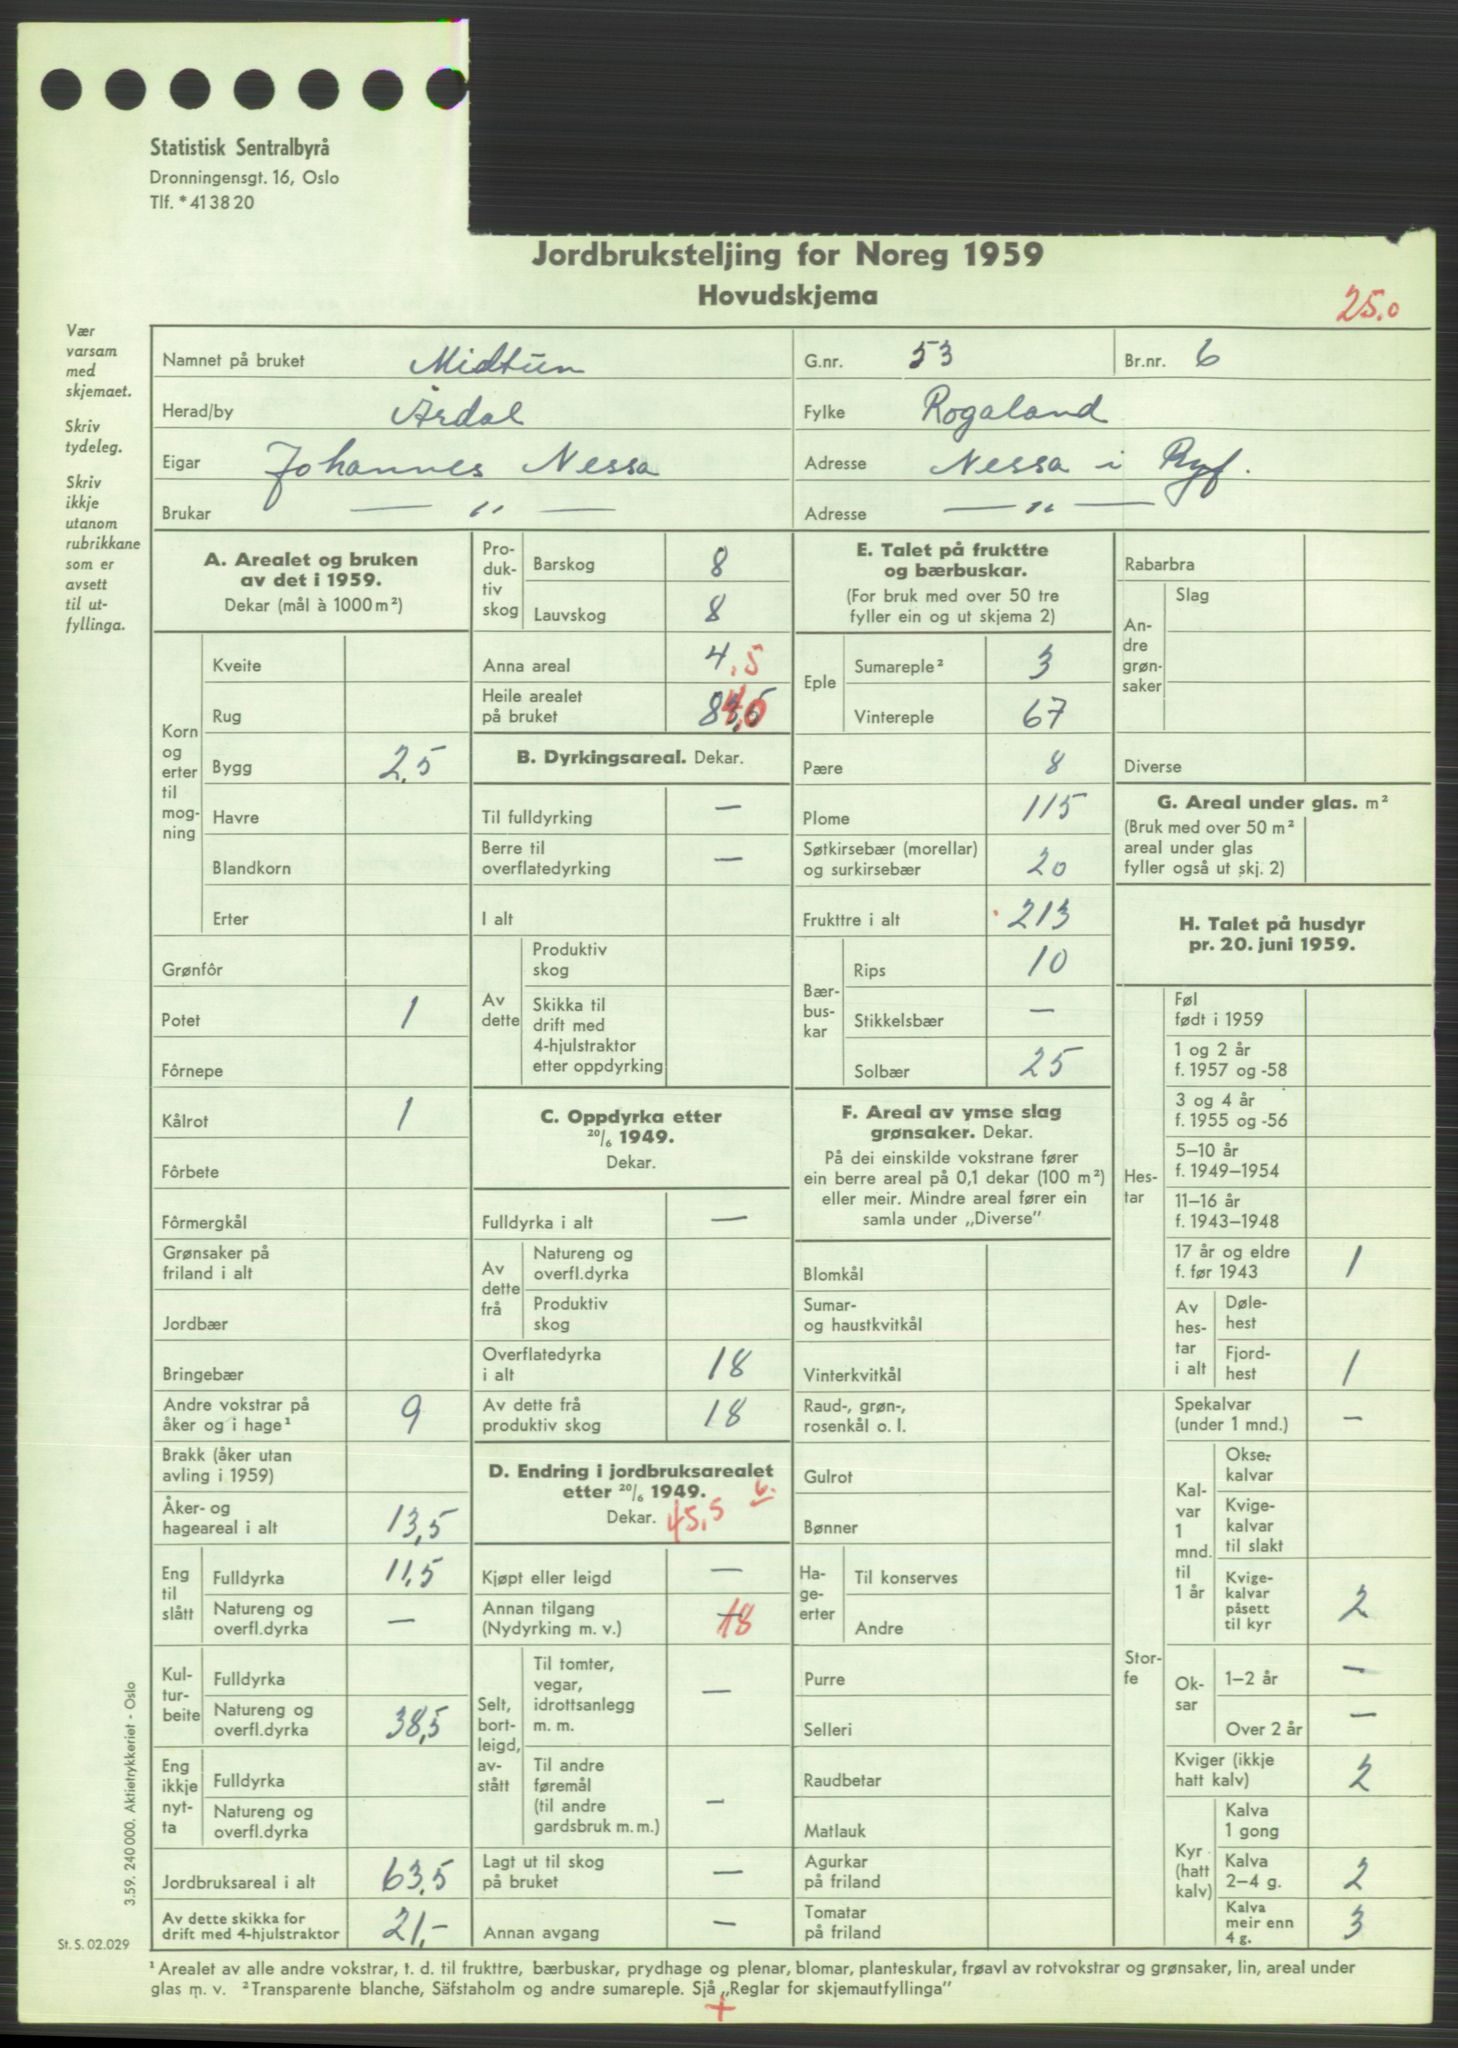 Statistisk Sentralbyrå
Dronningensgt. 16, Oslo
Tlf. *41 38 20
Jordbruksteljing for Noreg 1959
Hovudskjema
25.0
Vær
varsam
med
skjemaet.
Skriv
tydeleg.
Skriv
ikkje
utanom
rubrikkane
som er
avsett
til ut-
fyllinga.
Namnet på bruket Midtun G.nr. 53 Br.nr. 6
Herad/by Årdal Fylke Rogaland
Eigar Johannes Nessa Adresse Nessa i Ryf.
Brukar — " — Adresse — " —
A. Arealet og bruken
av det i 1959.
Dekar (mål à 1000 m²)
Korn og erter til mog-ning
Kveite
Rug
Bygg 2,5
Havre
Blandkorn
Erter
Grønfôr
Potet 1
Fôrnepe
Kålrot 1
Fôrbete
Fôrmergkål
Grønsaker på
friland i alt
Jordbær
Bringebær
Andre vokstrar på
åker og i hage¹ 9
Brakk (åker utan
avling i 1959)
Åker- og
hageareal i alt 13,5
Eng til slått
Fulldyrka 11,5
Natureng og
overfl.dyrka —
Kul-tur-beite
Fulldyrka
Natureng og
overfl.dyrka 38,5
Eng ikkje nyt-ta
Fulldyrka
Natureng og
overfl.dyrka
Jordbruksareal i alt 63,5
Av dette skikka for
drift med 4-hjulstraktor 21,-
Pro-duk-tiv skog
Barskog 8
Lauvskog 8
Anna areal 4,5
Heile arealet
på bruket 84,0
B. Dyrkingsareal. Dekar.
Til fulldyrking —
Berre til
overflatedyrking —
I alt
Av dette
Produktiv
skog
Skikka til
drift med
4-hjulstraktor
etter oppdyrking
C. Oppdyrka etter
20/6 1949.
Dekar.
Fulldyrka i alt —
Av dette frå
Natureng og
overfl.dyrka
Produktiv
skog
Overflatedyrka
i alt 18
Av dette frå
produktiv skog 18
D. Endring i jordbruksarealet
etter 20/6 1949. 6.
Dekar. 45,5
Kjøpt eller leigd —
Annan tilgang
(Nydyrking m. v.) — 18
Selt, bort-leigd, av-stått
Til tomter,
vegar,
idrottsanlegg
m. m. —
Til andre
føremål
(til andre
gardsbruk m. m.) —
Lagt ut til skog
på bruket —
Annan avgang —
E. Talet på frukttre
og bærbuskar.
(For bruk med over 50 tre
fyller ein og ut skjema 2)
Eple
Sumareple² 3
Vintereple 67
Pære 8
Plome 115
Søtkirsebær (morellar)
og surkirsebær 20
Frukttre i alt 213
Bær-bus-kar
Rips 10
Stikkelsbær —
Solbær 25
F. Areal av ymse slag
grønsaker. Dekar.
På dei einskilde vokstrane fører
ein berre areal på 0,1 dekar (100 m²)
eller meir. Mindre areal fører ein
samla under „Diverse”
Blomkål
Sumar-
og haustkvitkål
Vinterkvitkål
Raud-, grøn-,
rosenkål o. l.
Gulrot
Bønner
Ha-ge-erter
Til konserves
Andre
Purre
Selleri
Raudbetar
Matlauk
Agurkar
på friland
Tomatar
på friland
Rabarbra
An-dre grøn-saker
Slag
Diverse
G. Areal under glas. m²
(Bruk med over 50 m²
areal under glas
fyller også ut skj. 2)
H. Talet på husdyr
pr. 20. juni 1959.
Hes-tar
Føl
født i 1959
1 og 2 år
f. 1957 og -58
3 og 4 år
f. 1955 og -56
5–10 år
f. 1949–1954
11–16 år
f. 1943–1948
17 år og eldre
f. før 1943 1
Av hes-tar i alt
Døle-
hest
Fjord-
hest 1
Stor-fe
Spekalvar
(under 1 mnd.) —
Kal-var 1 mnd. til 1 år
Okse-
kalvar
Kvige-
kalvar
til slakt
Kvige-
kalvar
påsett
til kyr 2
Ok-sar
1–2 år —
Over 2 år —
Kviger (ikkje
hatt kalv) 2
Kyr (hatt kalv)
Kalva
1 gong
Kalva
2–4 g. 2
Kalva
meir enn
4 g. 3
3.59. 240 000. Aktietrykkeriet - Oslo
St. S. 02.029
¹ Arealet av alle andre vokstrar, t. d. til frukttre, bærbuskar, prydhage og plenar, blomar, planteskular, frøavl av rotvokstrar og grønsaker, lin, areal under
glas m. v. ² Transparente blanche, Säfstaholm og andre sumareple. Sjå „Reglar for skjemautfyllinga”
+